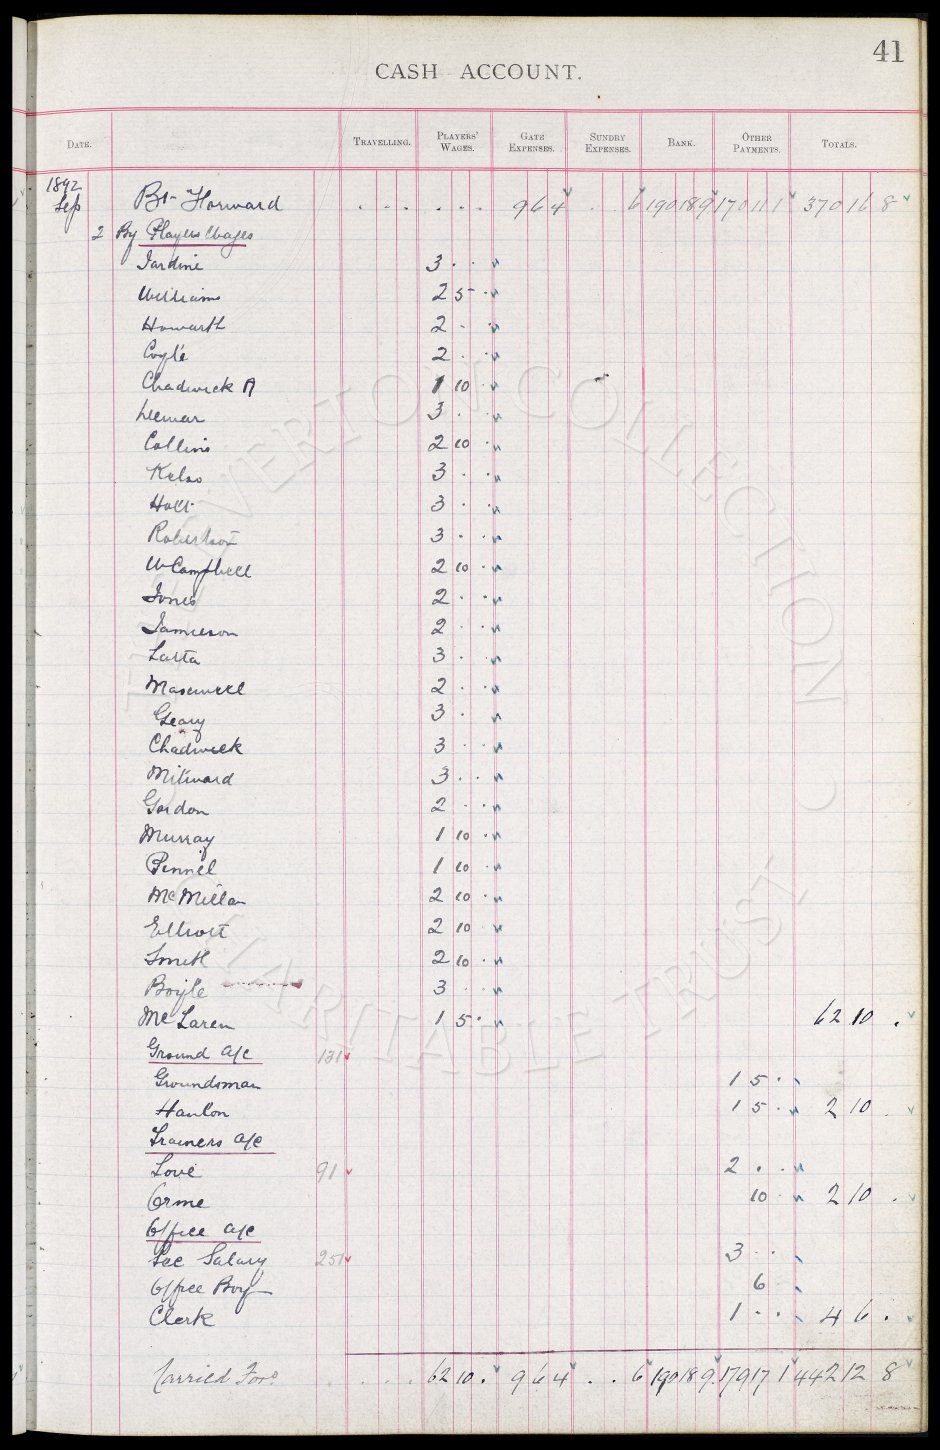 41
CASH ACCOUNT.
DATE. TRAVELLING. PLAYERS' WAGES. GATE EXPENSES. SUNDRY EXPENSES. BANK. OTHER PAYMENTS. TOTALS.
1892
Sep Bt Forward . . . . . . 9 6 4 . . 6 190 18 9 170 11 1 370 16 8
2 By Players Wages
Jardine 3 . .
Williams 2 5 .
Howarth 2 . .
Coyle 2 . .
Chadwick A 1 10 .
3 . .
Collins 2 10 .
Kelso 3 . .
Holt 3 . .
Robertson 3 . .
W Campbell 2 10 .
Jones 2 . .
Jamieson 2 . .
Latta 3 . .
Maxwell 2 . .
Geary 3 .
Chadwick 3 . .
Milward 3 . .
Gordon 2 . .
Murray 1 10 .
Pennel 1 10 .
McMillan 2 10 .
Elliott 2 10 .
Smith 2 10 .
Boyle 3 . .
McLaren 1 5 . 62 10 .
Ground a/c 131
Groundsman 1 5 .
Hanlon 1 5 . 2 10 .
Trainers a/c
Love 91 2 . .
Orme 10 . 2 10 .
Office a/c
Sec Salary 251 3 . .
Office Boy 6
Clerk 1 . . 4 6 .
Carried Ford . . . . 62 10 . 9 6 4 . . 6 190 18 9 179 17 1 442 12 8
THE EVERTON COLLECTION
CHARITABLE TRUST